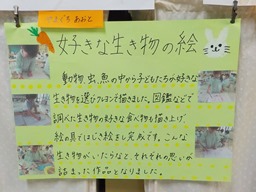 やまぐち あおと
好きな生き物の絵
動物、虫、魚の中から子どもたちが好きな
生き物を選びクレヨンで描きました。図鑑などで
調べた生き物の好きな食べ物も描き上げ、
絵の具ではじき絵をし完成です。こんな
生き物がいたらなと、それぞれの思いが
詰まった作品となりました。